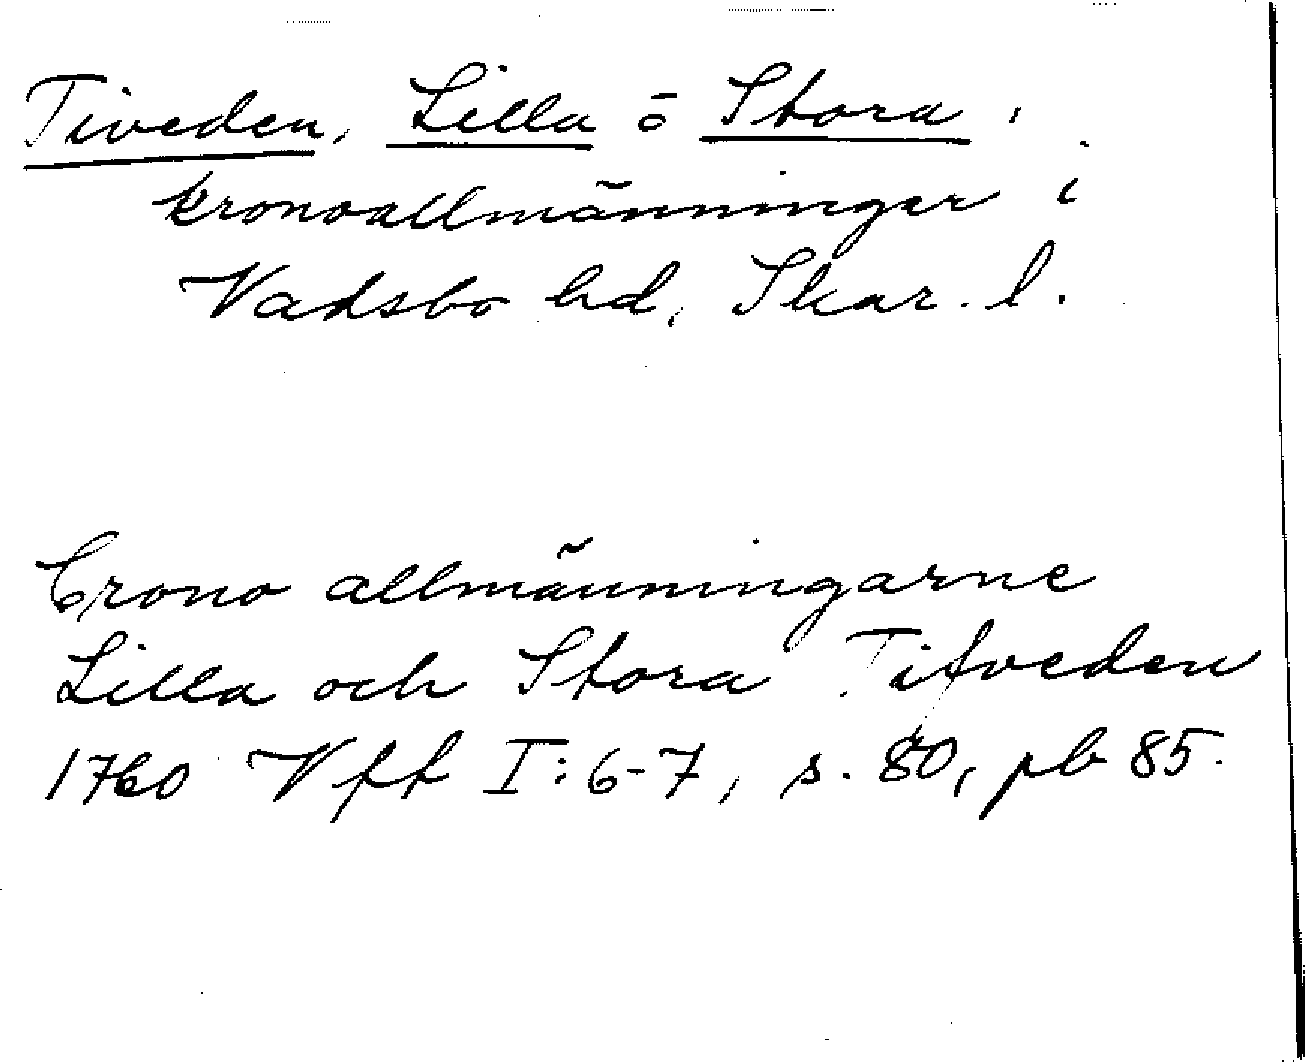 Tiveden, Lilla o Stora,
kronoallmänningar i
Vadsbo hd, Skar. l.
Crono allmänningarne
Lilla och Stora Tifveden
1760 Vff I:6-7, s. 80, pb 85.